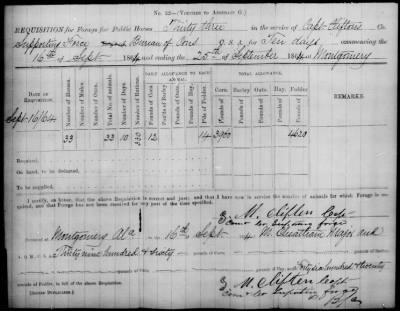 No. 33—(VOUCHER TO ABSTRACT G.)
REQUISITION for Forage for Public Horses Thirty three in the service of Capt Cliftons Co.
Supporting Force Bureau of Cons C. S. A. for Ten days,
commencing the
16th of Sept 1864 and ending the 25th of September 1864 at Montgomery
DATE OF REQUISITION.
Number of Horses.
Number of Mules.
Number of Oxen.
Total No. of animals.
Number of Days.
Number of Rations.
DAILY ALLOWANCE TO EACH ANIMAL.
Pounds of Corn.
Pounds of Barley
Pounds of Oats.
Pounds of Hay.
P'ds of Fodder.
TOTAL ALLOWANCE.
Corn.
Barley.
Oats.
Hay.
Fodder
REMARKS.
Sept 16/64 33 33 10 330 12 14 3960 4620
Required.
On hand, to be deducted.
To be supplied.
I certify, on honor, that the above Requisition is correct and just; and that I have now in service the number of animals for which Forage is required, and that Forage has not been received for any part of the time specified.
M. Cliften Capt
Montgomery Ala 16th Sept 4 Major and
Thirty nine hundred & sixty
Forty six hundred & twenty
pounds of Fodder, in full of the above Requisition.
M. Cliften Capt
[SIGNED DUPLICATES.]